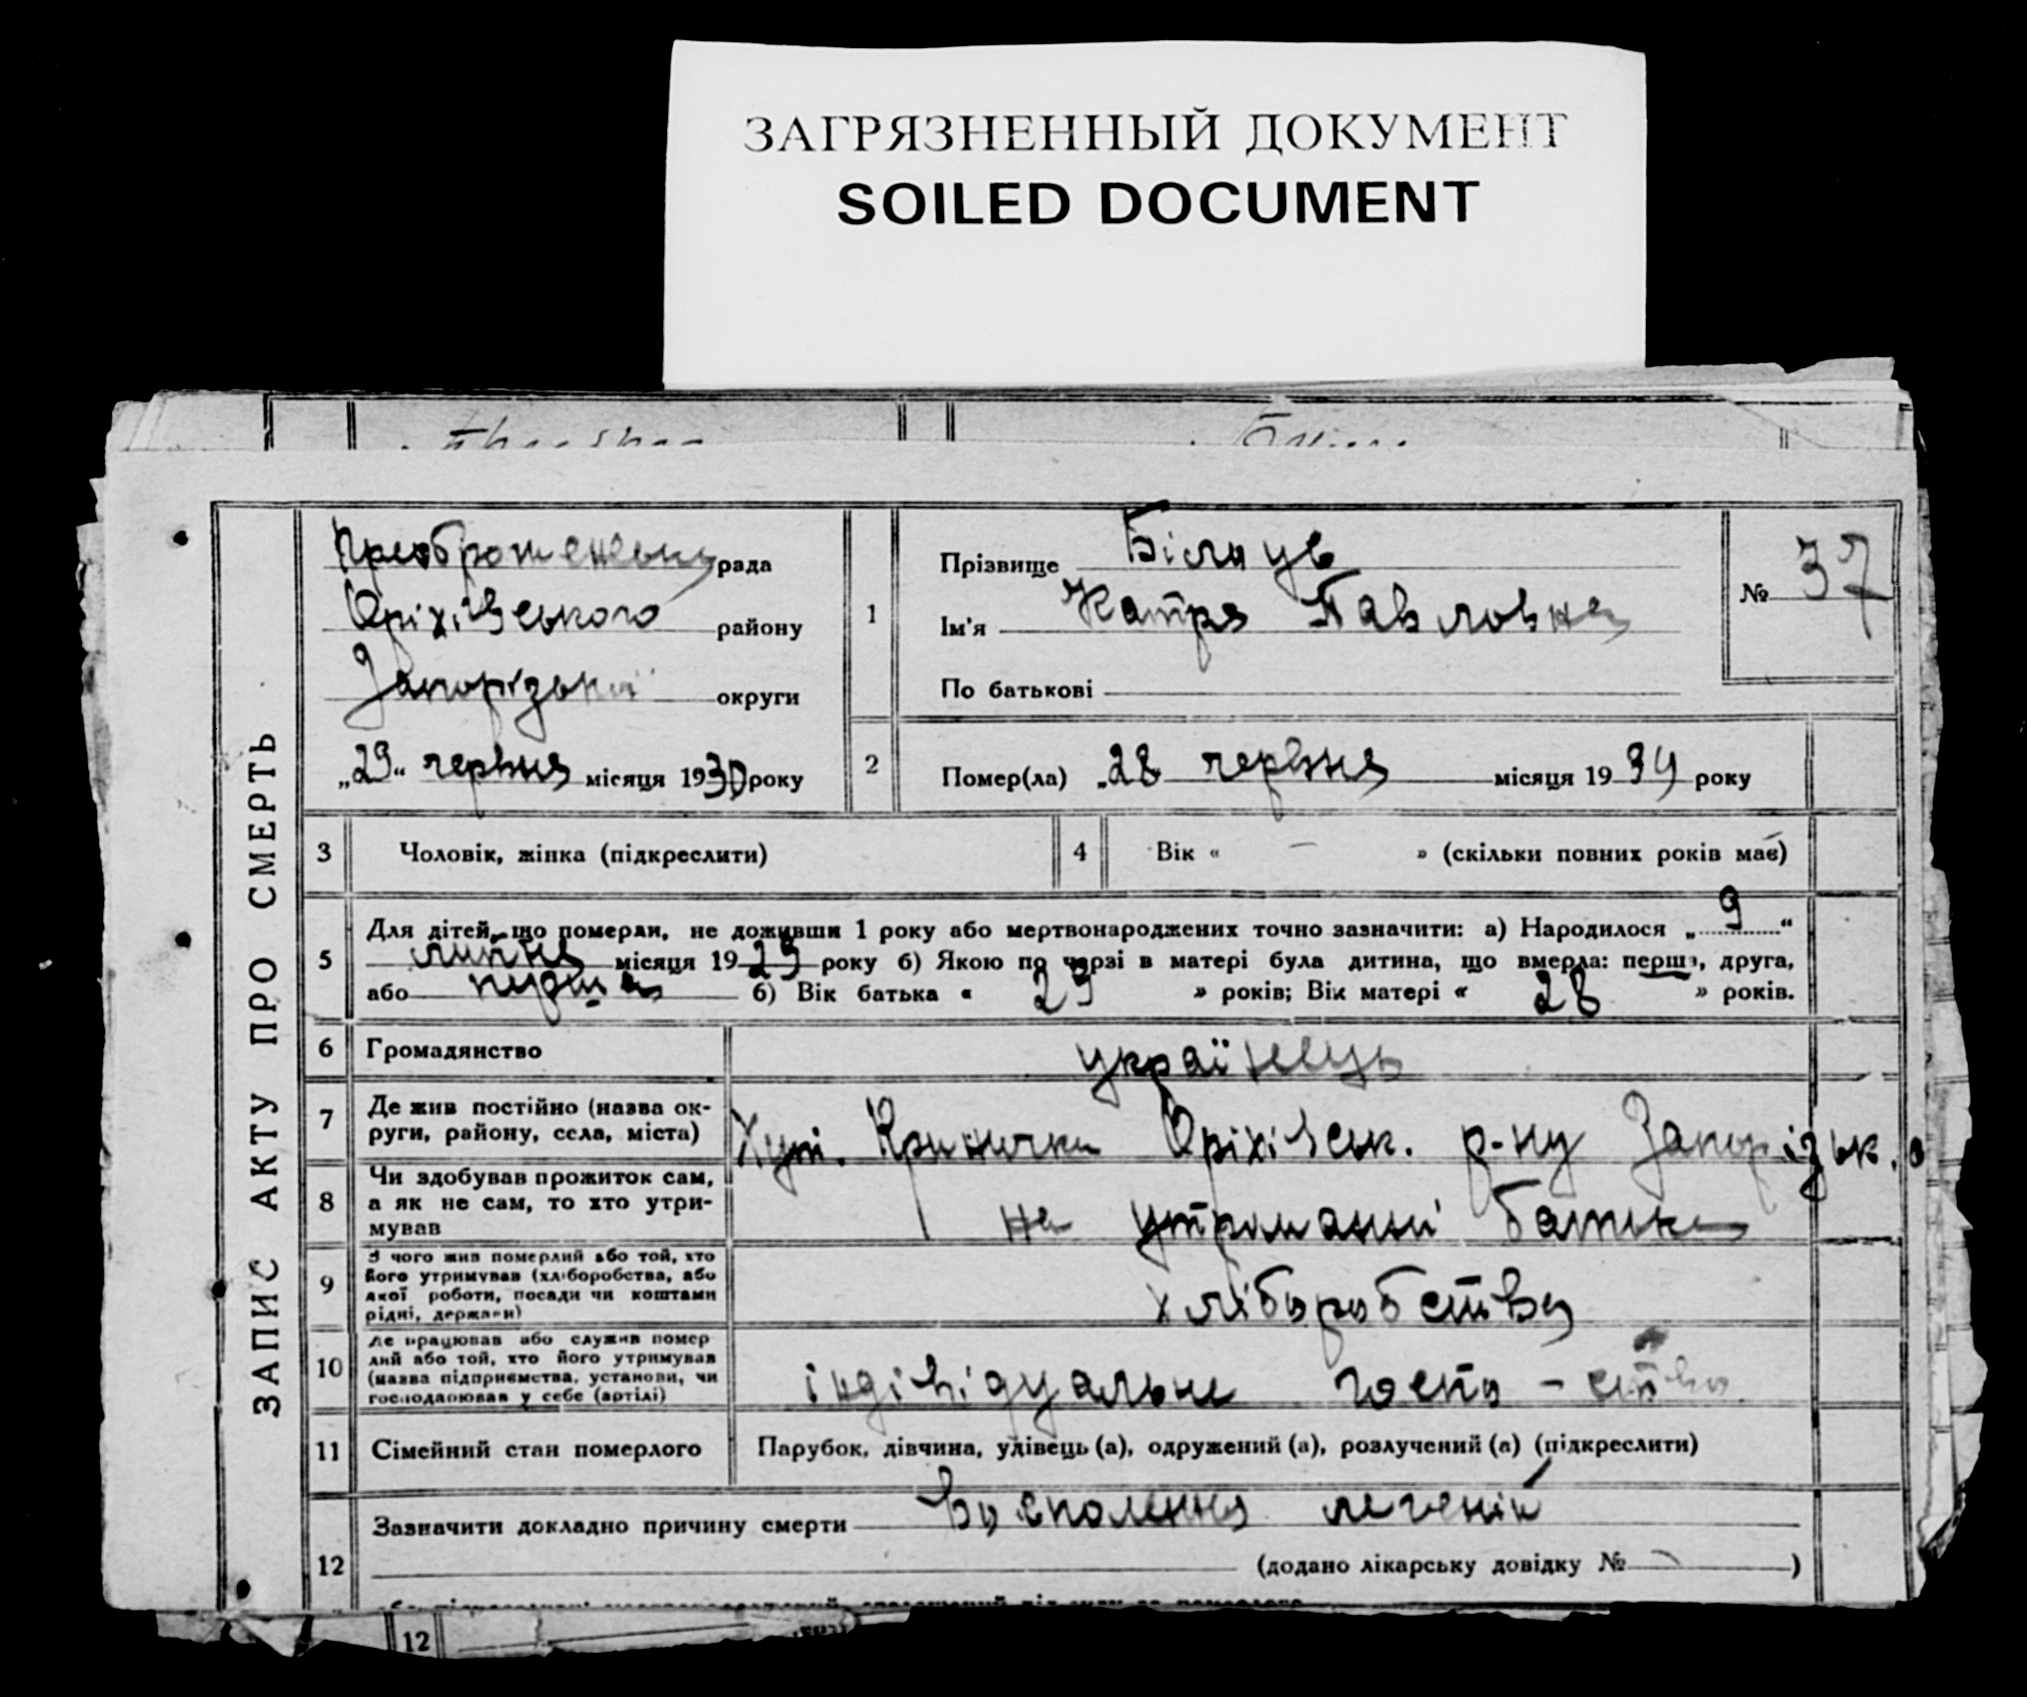 ЗАГРЯЗНЕННЫЙ ДОКУМЕНТ
SOILED DOCUMENT
ЗАПИС АКТУ ПРО СМЕРТЬ
рада
Оріхівського району
Запорізької округи
„29“ червня місяця 1930 року
1
Прізвище
Ім'я Катря Павловна
По батькові
№ 37
2
Помер(ла) „28 червня місяця 19 року
3 Чоловік, жінка (підкреслити)
4 Вік « — » (скільки повних років має)
5
Для дітей, що померли, не доживши 1 року або мертвонароджених точно зазначити: а) Народилося „ 9 “
липня місяця 19 29 року б) Якою по черзі в матері була дитина, що вмерла: перша, друга,
або перша б) Вік батька « 29 » років; Вік матері « 28 » років.
6 Громадянство українець
7
Де жив постійно (назва ок-
руги, району, села, міста)
Хут. Кринички Оріхівськ. р-ну Запорізьк. о
8
Чи здобував прожиток сам,
а як не сам, то хто утри-
мував
на утриманні батька
9
З чого жив померлий або той, хто
його утримував (хліборобства, або
якої роботи, посади чи коштами
рідні, держави)
хліборобства
10
Де працював або служив помер
лий або той, хто його утримував
(назва підприємства, установи, чи
господарював у себе (артілі)
індівідуальне госпо-ство
11 Сімейний стан померлого
Парубок, дівчина, удівець (а), одружений (а), розлучений (а) (підкреслити)
12
Зазначити докладно причину смерти Воспалення легенів
(додано лікарську довідку № — )
12